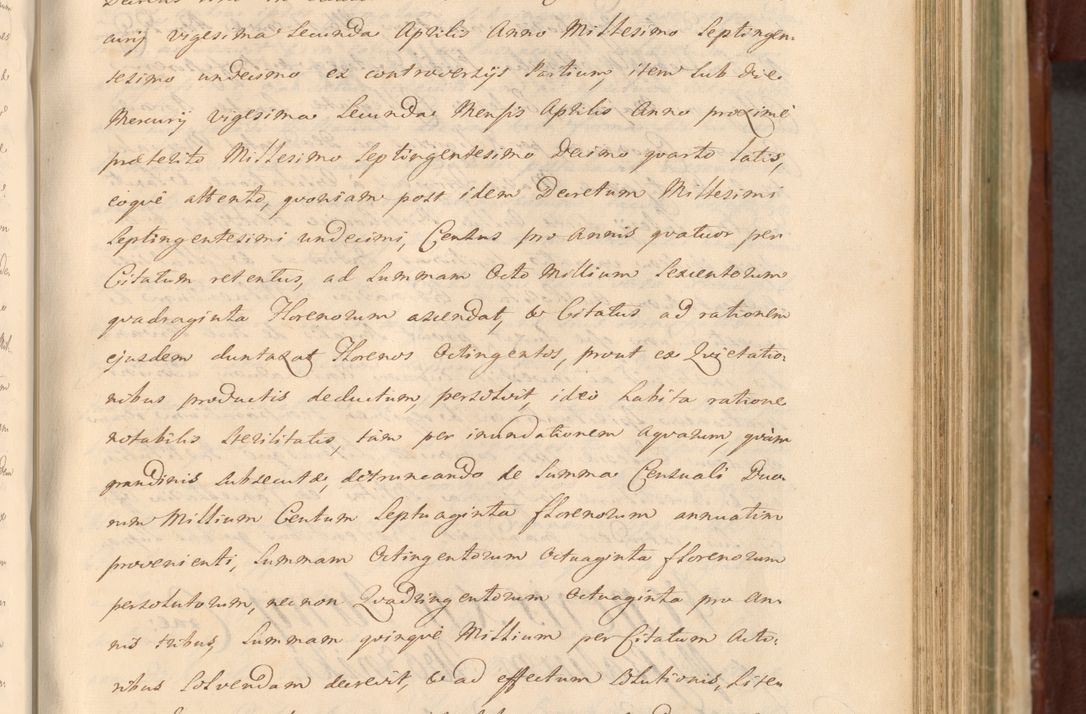 curij vigesima secunda Aprilis Anno Millesimo Septingen-
tesimo undecimo ex controversijs Partium, item sub die
Mercurij vigesima Secunda Mensis Aprilis Anno proximè
præterito Millesimo Septingentesimo Decimo quarto latis,
eoquè attento, quoniam post idem Decretum Millesimi
Septingentesimi undecimi, Census pro Annis quatuor per
Citatum retentus, ad Summam Octo Millium Sexcentorum
quadraginta Florenorum ascendat, & Citatus ad rationem
ejusdem duntaxat Florenos Octingentos, prout ex Quietatio-
nibus productis deductum, persolvit, ideò habita ratione
notabilis sterilitatis, tàm per inundationem aquarum, quàm
grandinis subsecutæ, detruncando de Summa Censuali Duo-
rum Millium Centum Septuaginta florenorum annuatim
provenienti, Summam Octingentorum Octuaginta florenorum
persolutorum, necnon Quadringentorum Octuaginta pro An-
nis tribus, Summam quinquè Millium per Citatum Acto-
ribus solvendam decrevit, & ad effectum solutionis, Liten